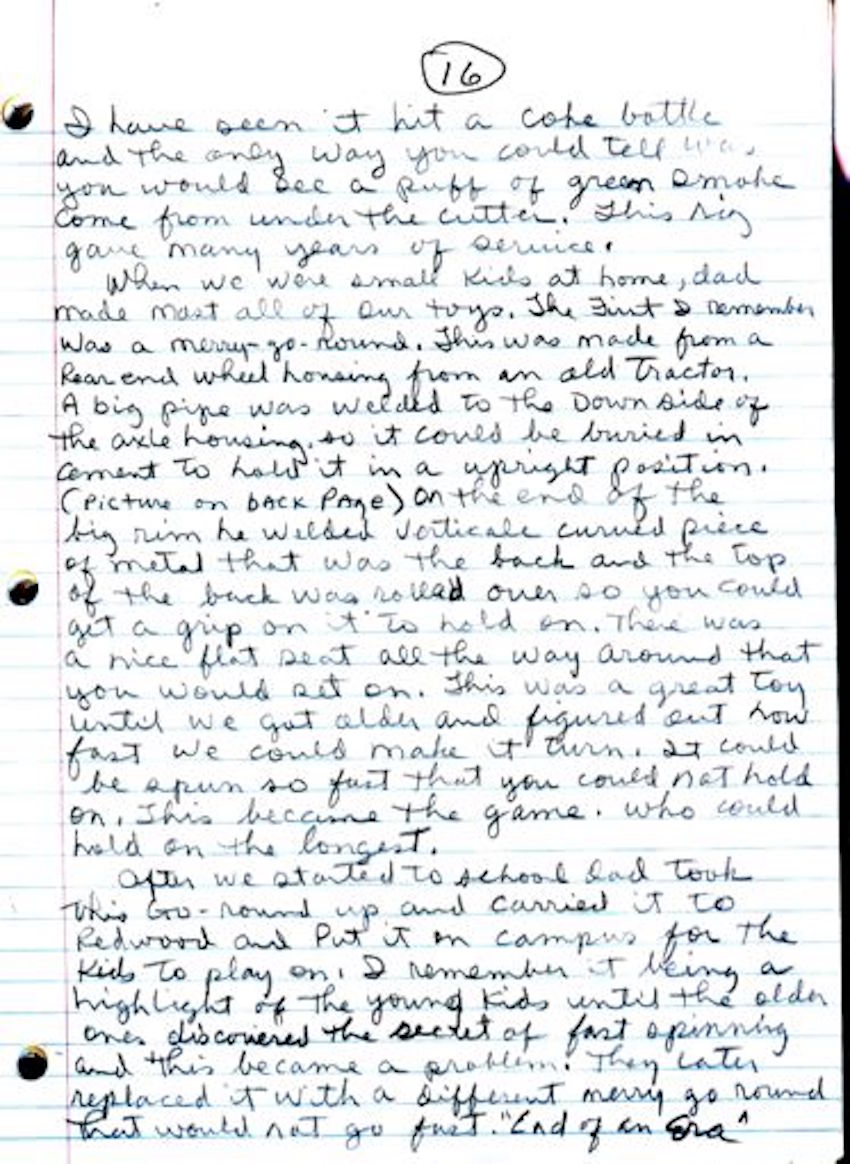 16
I have seen it hit a coke bottle
and the only way you could tell was
you would see a puff of green smoke
come from under the cutter. This rig
gave many years of service.
When we were small kids at home, dad
made most all of our toys. The First I remember
was a merry-go-round. This was made from a
Rear end wheel housing from an old Tractor.
A big pipe was welded to the Down side of
the axle housing, so it could be buried in
cement to hold it in a upright position.
(Picture on BACK PAge) On the end of the
big rim he welded verticale curved piece
of metal that was the back and the top
of the back was rolled over so you could
get a grip on it to hold on. There was
a nice flat seat all the way around that
you would set on. This was a great toy
until we got older and figured out how
fast we could make it turn. It could
be spun so fast that you could not hold
on. This became the game. who could
hold on the longest.
After we started to school dad took
this Go-round up and carried it to
Redwood and Put it on campus for the
Kids to play on. I remember it being a
highlight of the young kids until the older
ones discovered the secret of fast spinning
and this became a problem. They later
replaced it with a different merry go round
that would not go fast. "End of an Era"